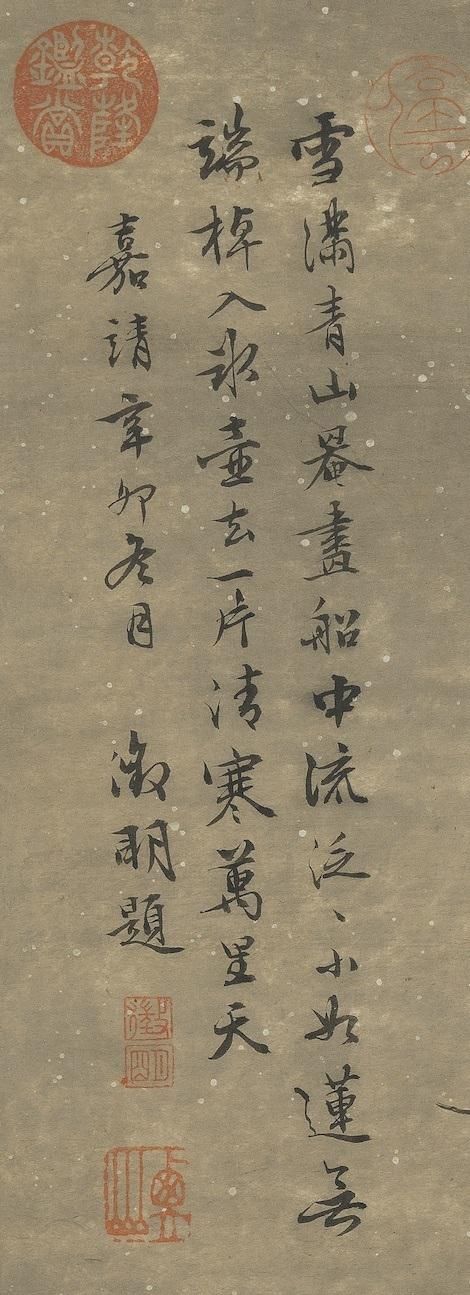 雪滿青山罨畫船中流泛〻小如蓮無
端棹入冰壺去一片清寒萬里天
嘉靖辛卯冬月 徵明題
乾隆鑑賞
徵明